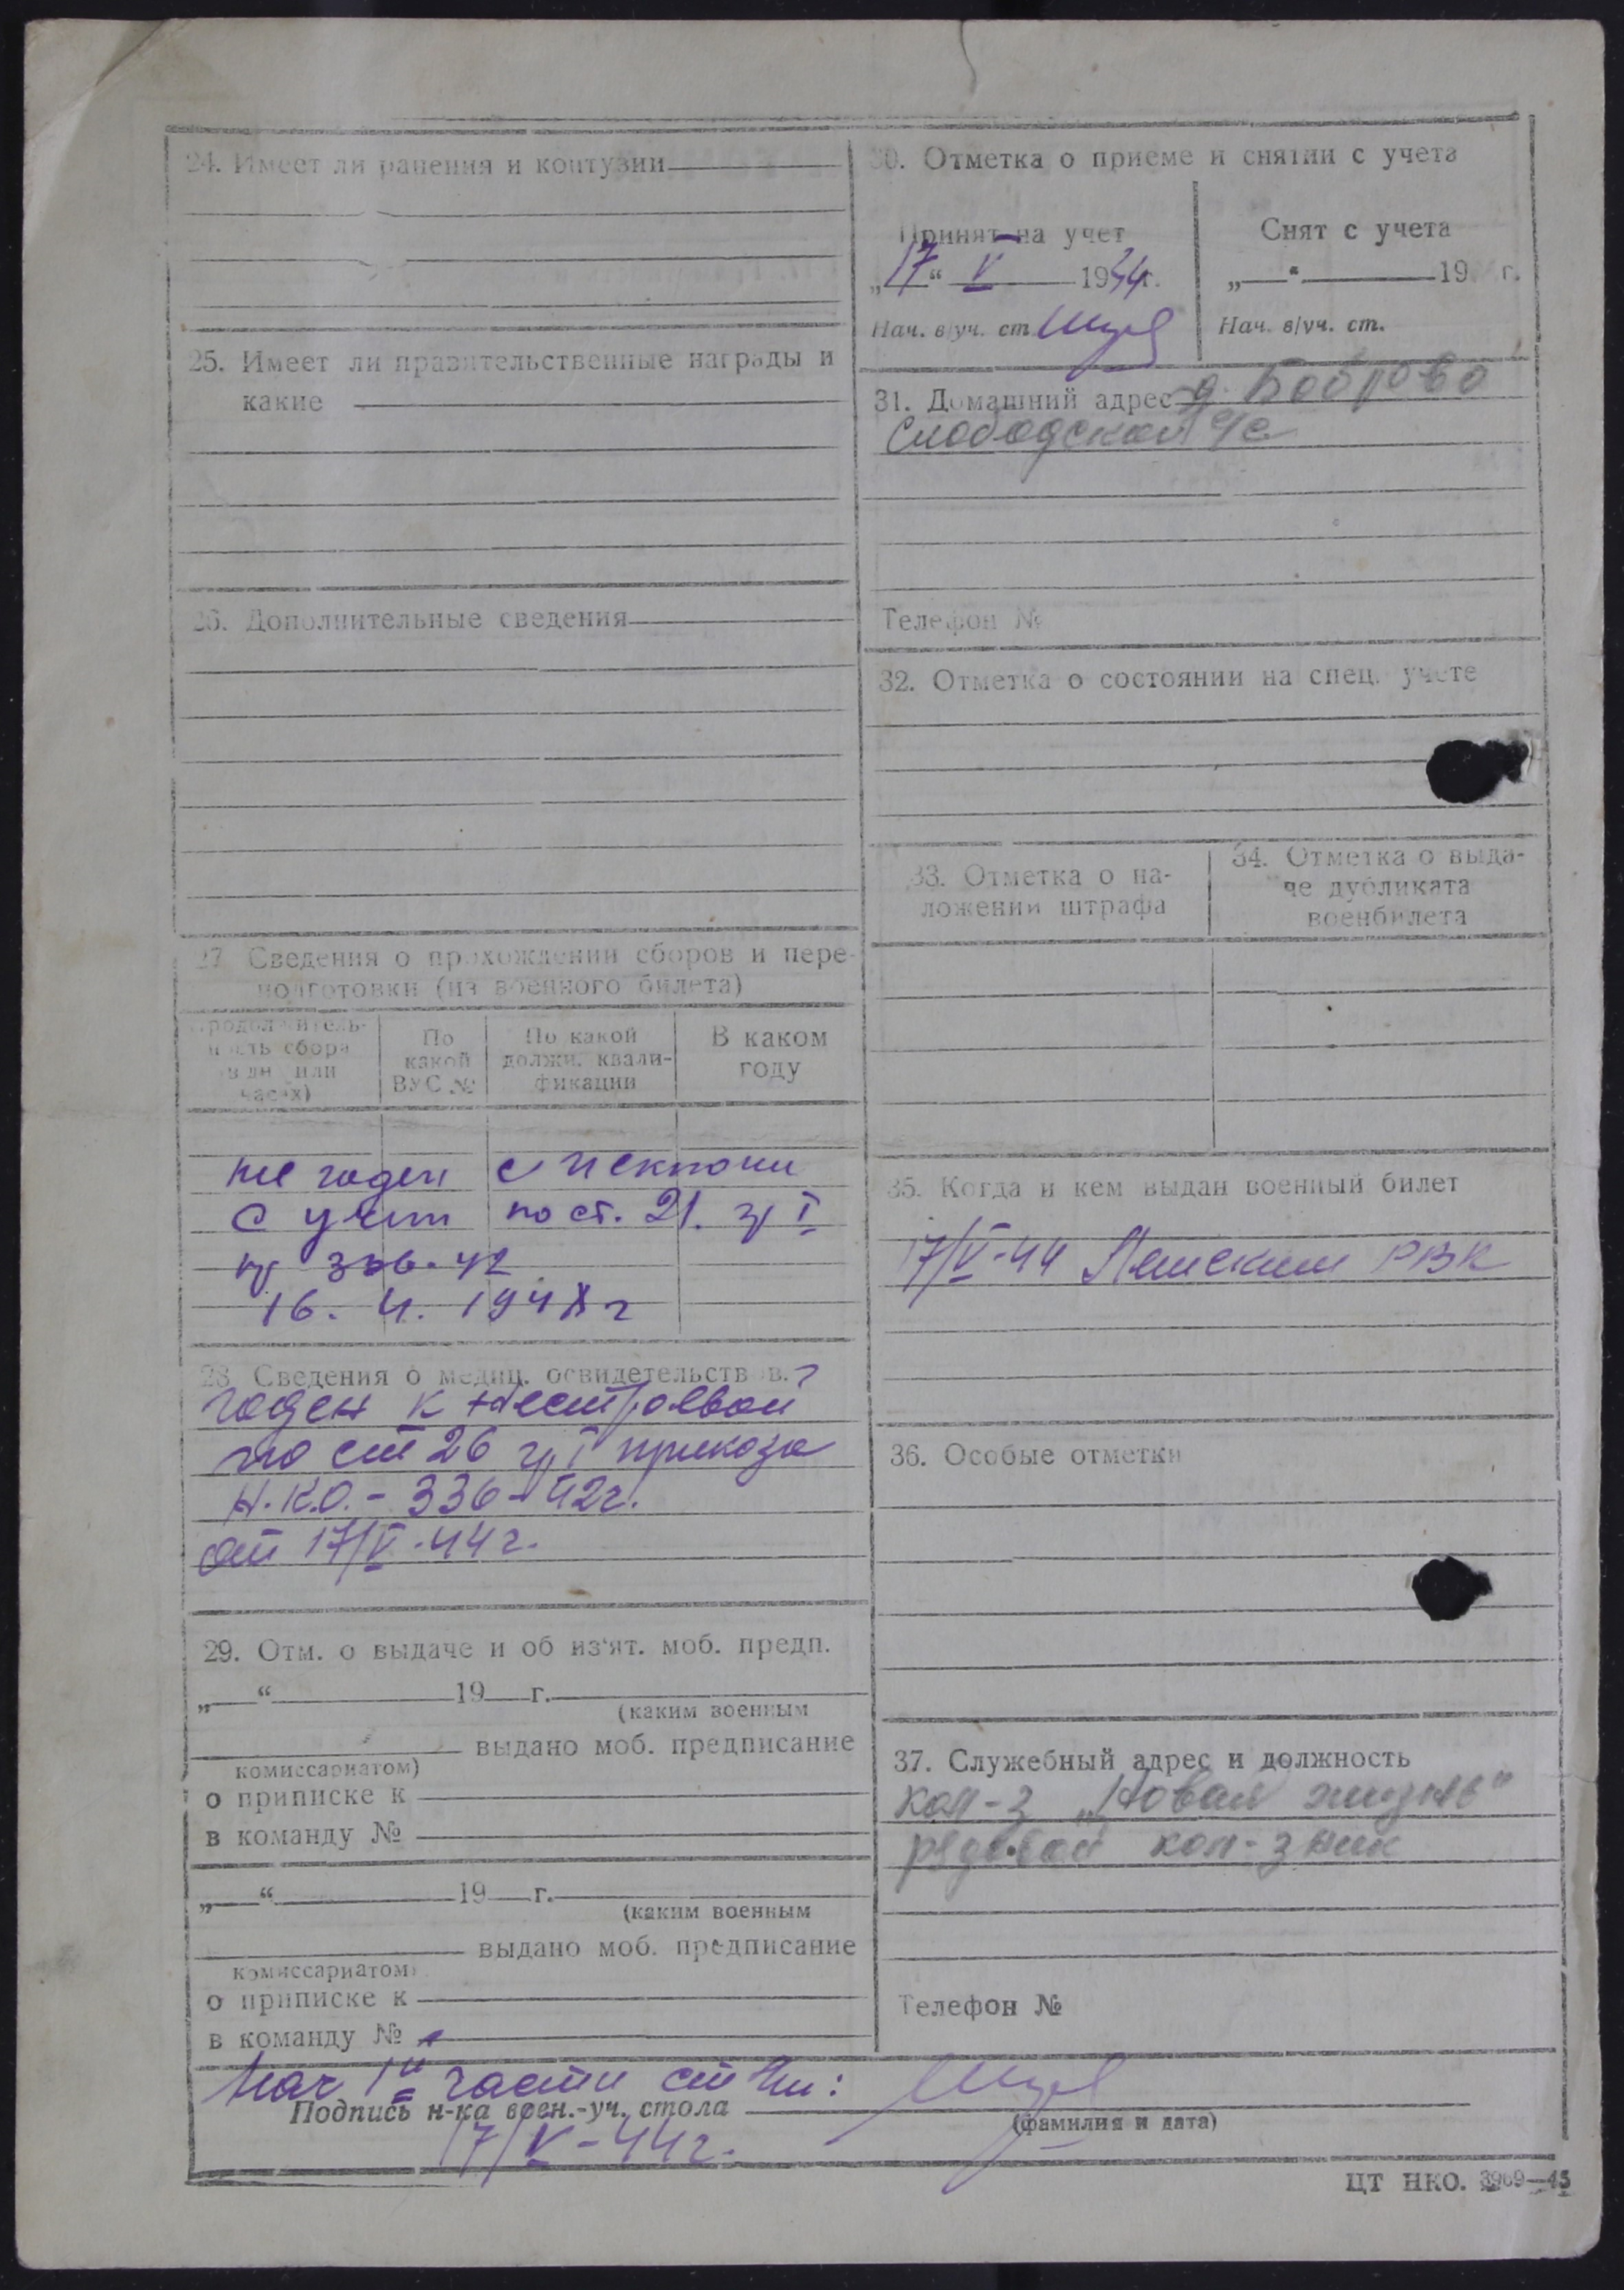 24. Имеет ли ранения и контузии
25. Имеет ли правительственные награды и
какие
26. Дополнительные сведения
27. Сведения о прохождении сборов и пере-
подготовки (из военного билета)
Продолжитель-
ность сбора
(в дн. или
часах)
По
какой
ВУС №
По какой
должн. квали-
фикации
В каком
году
не годен с
с учета по ст. 21. гр I
пр 336-42
16. 4. 194 г
28. Сведения о медиц. освидетельствов.
годен к нестроевой
по ст 26 гр I приказа
Н.К.О. - 336-42г.
от 17/V-44г.
29. Отм. о выдаче и об из'ят. моб. предп.
„ “ 19 г.
(каким военным
выдано моб. предписание
комиссариатом)
о приписке к
в команду №
„ “ 19 г.
(каким военным
выдано моб. предписание
комиссариатом)
о приписке к
в команду №
30. Отметка о приеме и снятии с учета
Принят на учет
„17“ V 1944г.
Нач. в/уч. ст.
Снят с учета
„ “ 19 г.
Нач. в/уч. ст.
31. Домашний адрес д. Боброво
Слободской с/с
Телефон №
32. Отметка о состоянии на спец. учете
33. Отметка о на-
ложении штрафа
34. Отметка о выда-
че дубликата
военбилета
35. Когда и кем выдан военный билет
17/V-44 РВК
36. Особые отметки
37. Служебный адрес и должность
кол-з „Новая жизнь“
рядовой кол-зник
Телефон №
Нач 1й части
Подпись н-ка воен.-уч. стола
(фамилия и дата)
17/V-44г.
ЦТ НКО. 3969—43